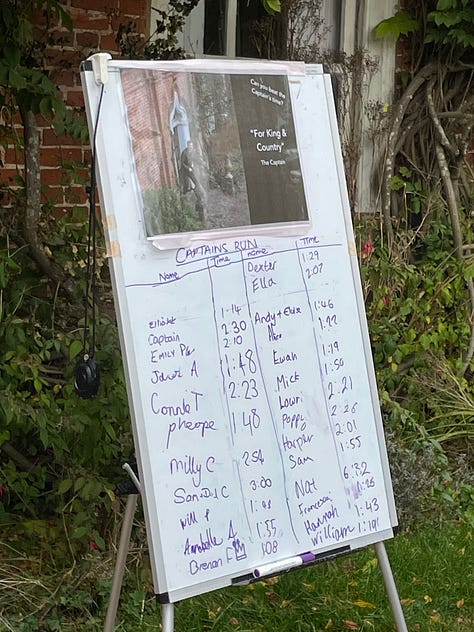 Can you beat the
Captain's time?
"For King &
Country"
The Captain
CAPTAINS RUN
Name Time name Time
Dexter 1:29
Ella 2:07
Elliott 1:14
Captain 2:30
Andy + Elsie 1:46
EMILY 2:10
1:22
A 1:48
Ewan 1:19
Connie T 2:23
Mick 1:50
1:48
Lowri 2:21
Poppy 2:26
Milly C 2:54
Harper 2:01
C 3:00
Sam 1:55
Will
Nat 6:32
Annabelle 1:55
Francesca
Hannah 1:43
Brenan F 1:08
William 1:19